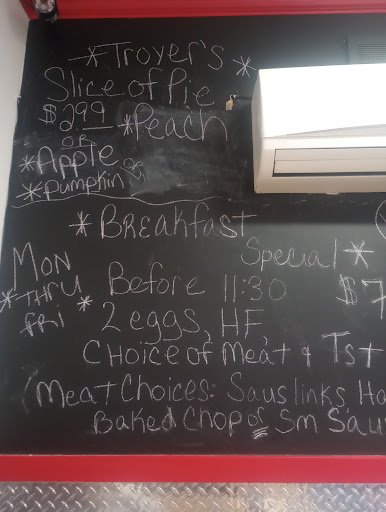 *Troyer's*
Slice of Pie
$2.99 *Peach
or
*Apple or
*Pumpkin
*Breakfast
Special*
Mon
*Thru*
Fri
Before 11:30 $7
2 eggs, HF
Choice of Meat & Tst
(Meat Choices: Saus links Ha
Baked Chop or Sm Sau